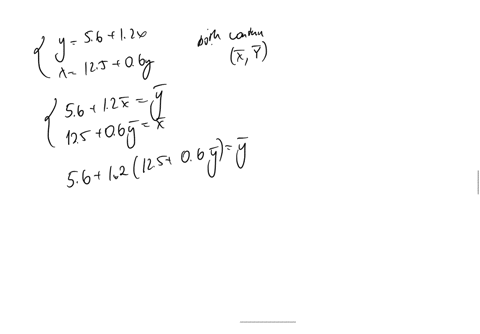 y = 5.6 + 1.2x
x = 12.5 + 0.6y
both contain
(x̄, ȳ)
5.6 + 1.2x̄ = ȳ
12.5 + 0.6ȳ = x̄
5.6 + 1.2(12.5 + 0.6ȳ) = ȳ